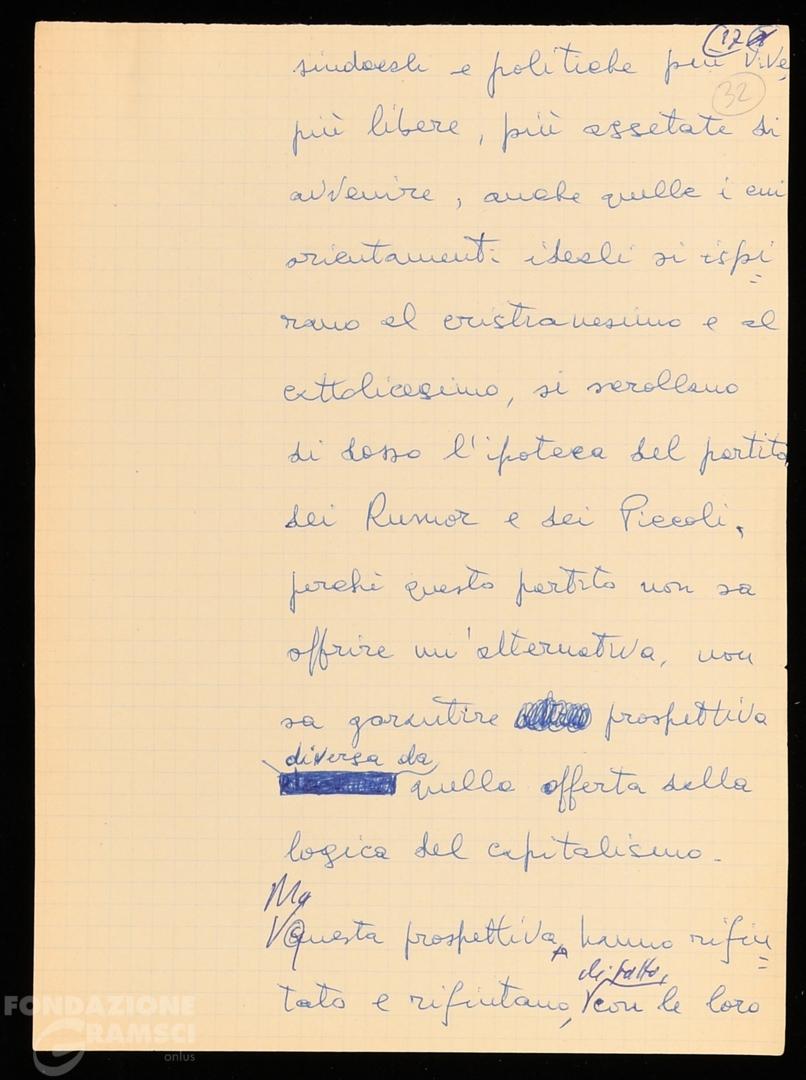 17
32
sindacali e politiche più vive,
più libere, più assetate di
avvenire, anche quelle i cui
orientamenti ideali si ispi=
rano al cristianesimo e al
cattolicesimo, si scrollano
di dosso l'ipoteca del partito
dei Rumor e dei Piccoli,
perché questo partito non sa
offrire un'alternativa, non
sa garantire prospettiva
diversa da
quella offerta dalla
logica del capitalismo.
Ma
questa prospettiva, hanno rifiu=
di fatto,
tato e rifiutano, con le loro
FONDAZIONE
GRAMSCI
onlus